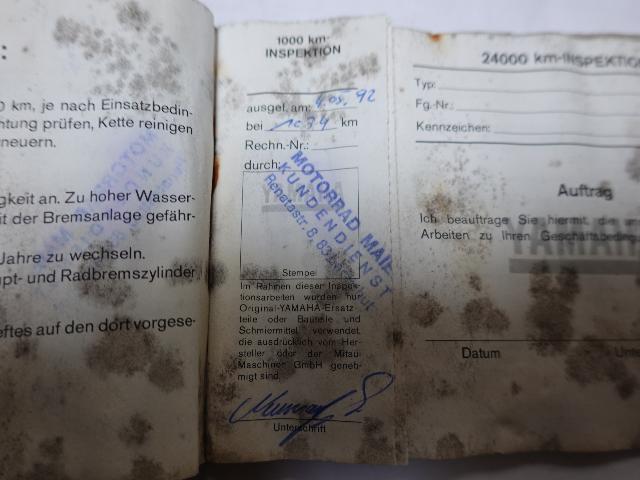 :
0 km, je nach Einsatzbedin-
htung prüfen, Kette reinigen
erneuern.
igkeit an. Zu hoher Wasser-
it der Bremsanlage gefähr-
Jahre zu wechseln.
pt- und Radbremszylinder
eftes auf den dort vorgese-
1000 km-
INSPEKTION
ausgef. am: 4.05.92
bei 1034 km
Rechn.-Nr.:
durch:
YAMAHA
MOTORRAD MAIE
KUNDENDIENST
Renatastr. 8, 83
Stempel
Im Rahmen dieser Inspek-
tionsarbeiten wurden nur
Original-YAMAHA-Ersatz-
teile oder Bauteile und
Schmiermittel verwendet,
die ausdrücklich vom Her-
steller oder der Mitsui
Maschinen GmbH geneh-
migt sind.
Unterschrift
24000 km-INSPEKTION
Typ:
Fg.-Nr.:
Kennzeichen:
Auftrag
Ich beauftrage Sie hiermit, die
Arbeiten zu Ihren Geschäftsbeding
YAMAHA
Datum Unte